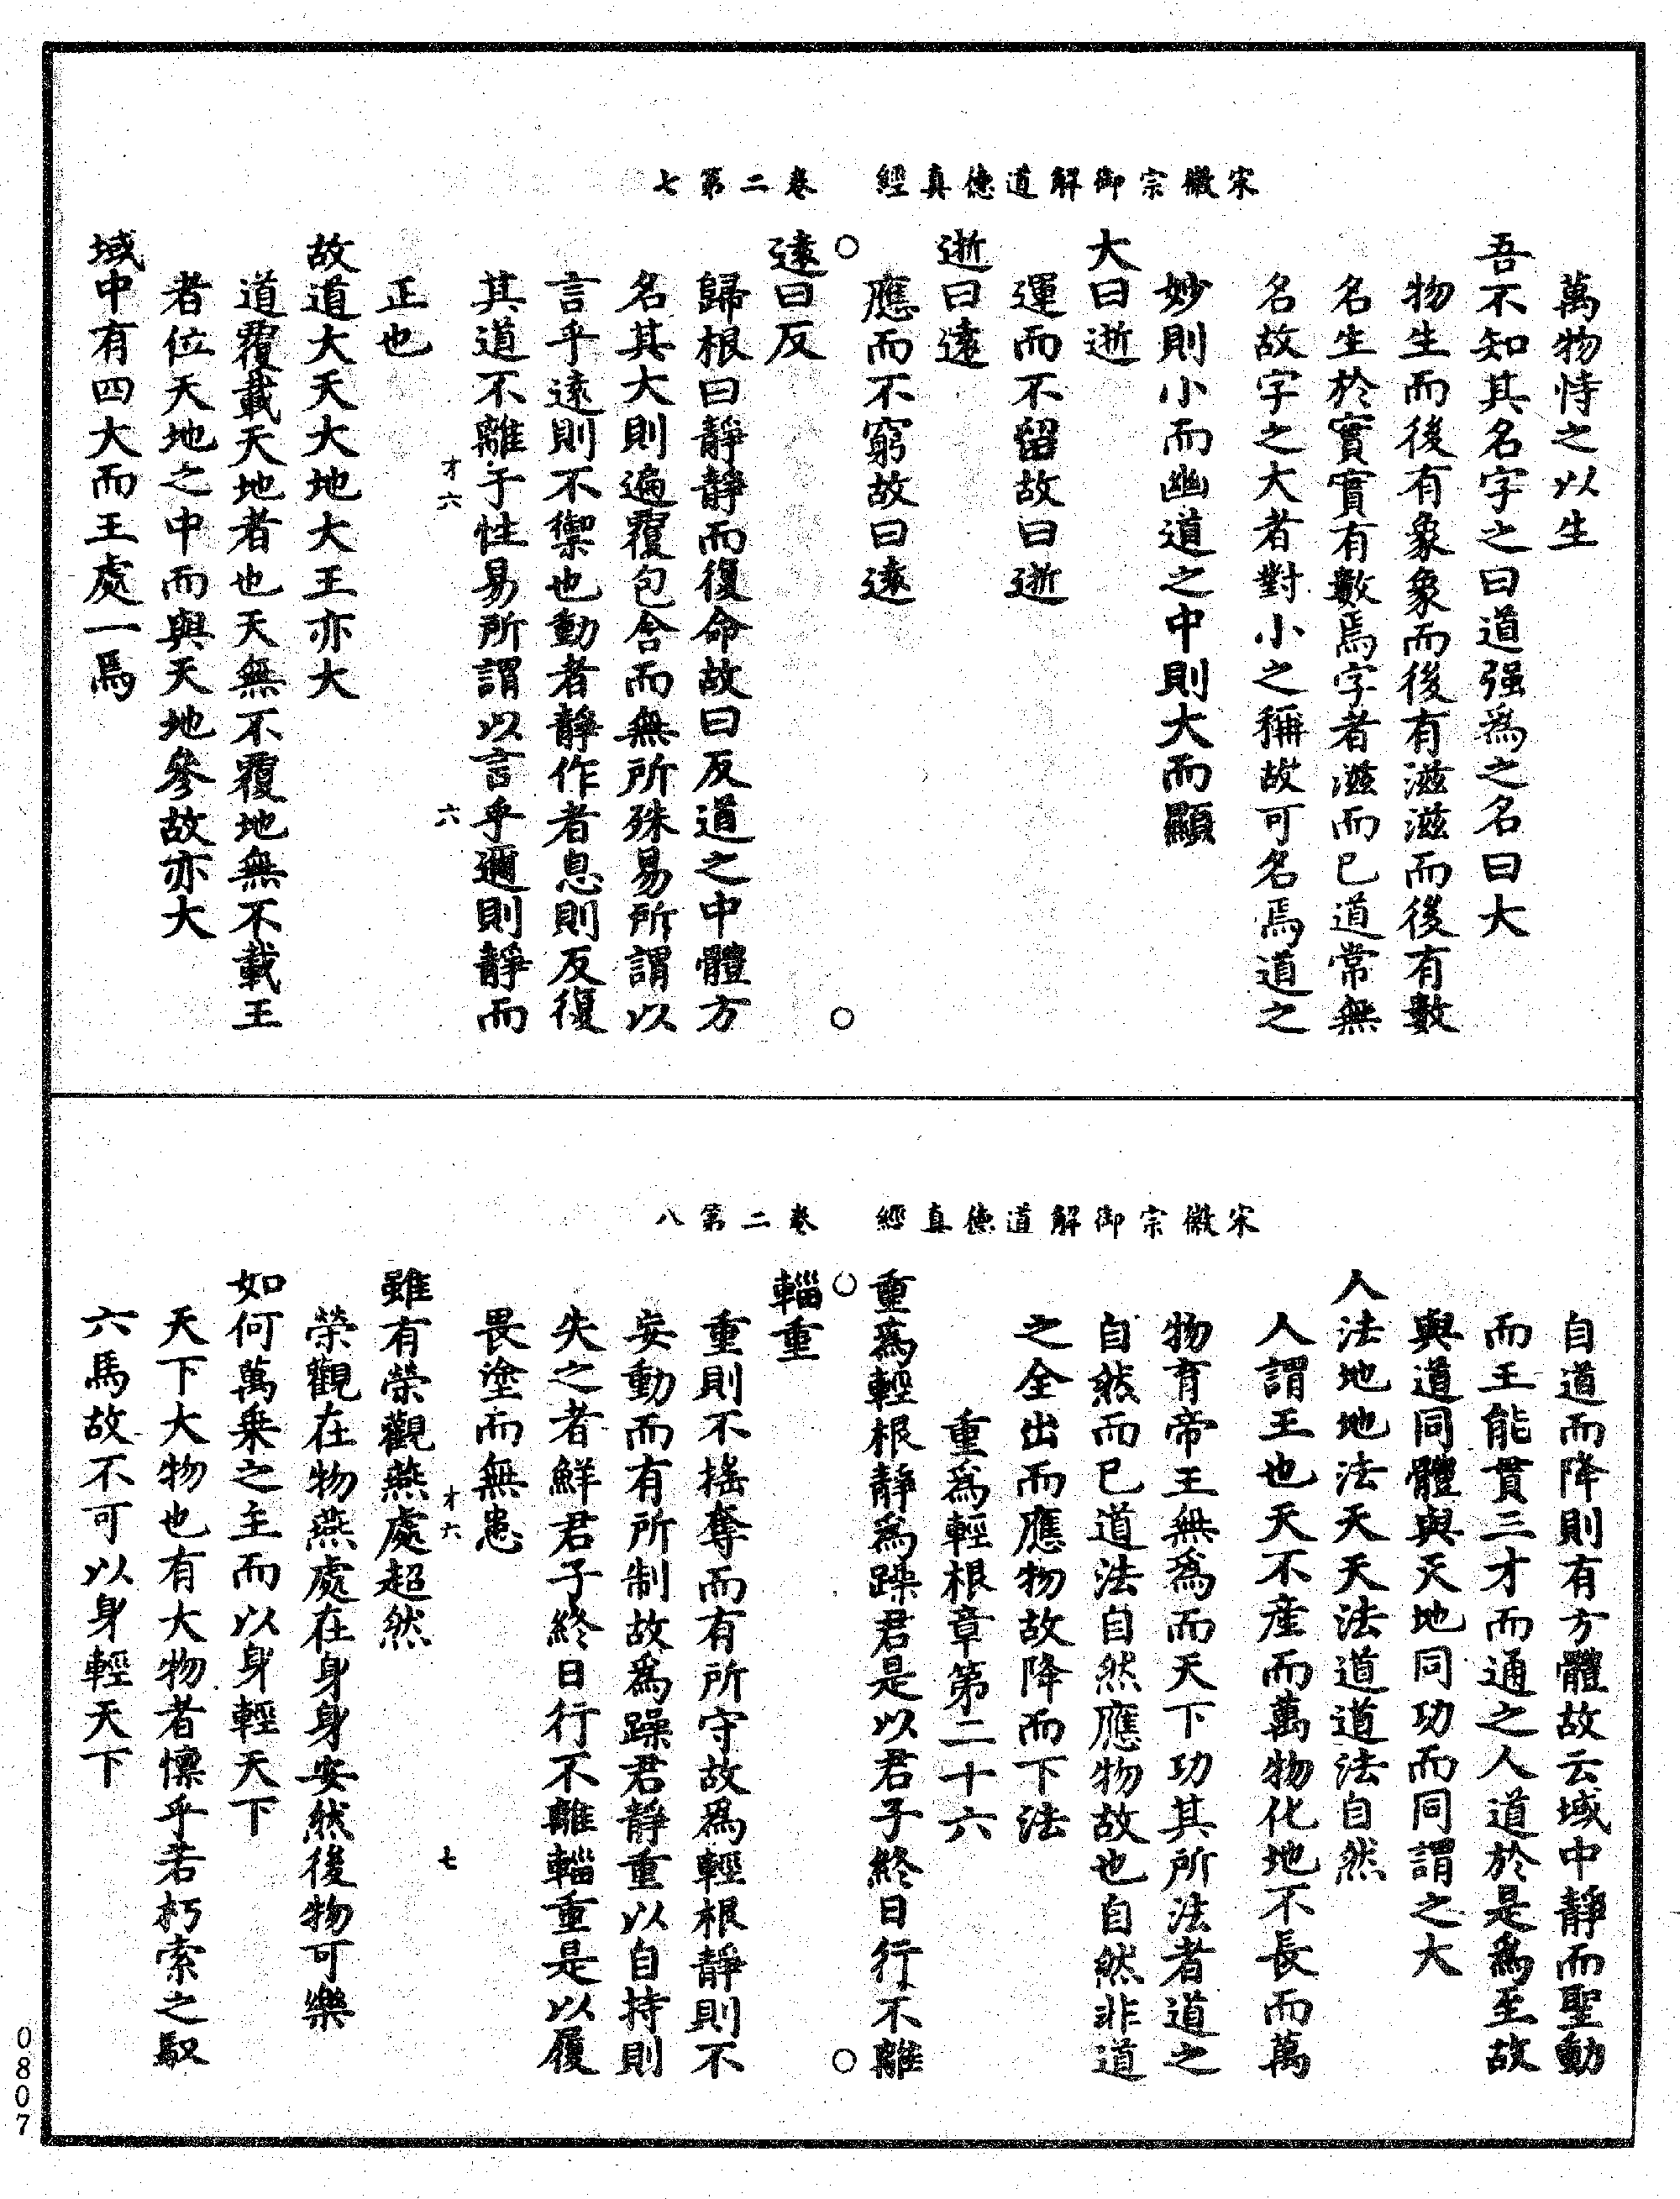 宋徽宗御解道德真經　卷二第七
萬物恃之以生
吾不知其名字之曰道强爲之名曰大
物生而後有象象而後有滋滋而後有數
名生於實實有數焉字者滋而已道常無
名故字之大者對小之稱故可名焉道之
妙則小而幽道之中則大而顯
大曰逝
運而不留故曰逝
逝曰遠
應而不窮故曰遠
遠曰反
歸根曰靜靜而復命故曰反道之中體方
名其大則遍覆包含而無所殊易所謂以
言乎遠則不禦也動者靜作者息則反復
其道不離于性易所謂以言乎邇則靜而
才六　六
正也
故道大天大地大王亦大
道覆載天地者也天無不覆地無不載王
者位天地之中而與天地參故亦大
域中有四大而王處一焉
宋徽宗御解道德真經　卷二第八
自道而降則有方體故云域中靜而聖動
而王能貫三才而通之人道於是爲至故
與道同體與天地同功而同謂之大
人法地地法天天法道道法自然
人謂王也天不產而萬物化地不長而萬
物育帝王無為而天下功其所法者道之
自然而已道法自然應物故也自然非道
之全出而應物故降而下法
重爲輕根章第二十六
重爲輕根靜爲躁君是以君子終日行不離
輜重
重則不搖奪而有所守故爲輕根靜則不
妄動而有所制故爲躁君靜重以自持則
失之者鮮君子終日行不離輜重是以履
畏塗而無患
才六　七
雖有榮觀燕處超然
榮觀在物燕處在身身安然後物可樂
如何萬乗之主而以身輕天下
天下大物也有大物者懍乎若朽索之馭
六馬故不可以身輕天下
0807